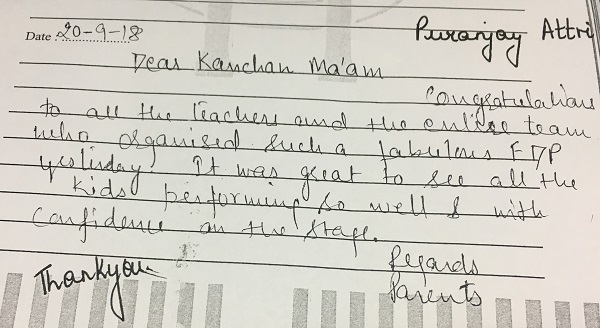 Puranjay Attri
Date : 20-9-18
Dear Kanchan Ma'am
Congratulations
to all the Teachers and the entire team
who organised such a fabulous FDP
yesterday. It was great to see all the
kids performing so well & with
Confidence on the stage.
Regards
Thankyou
Parents